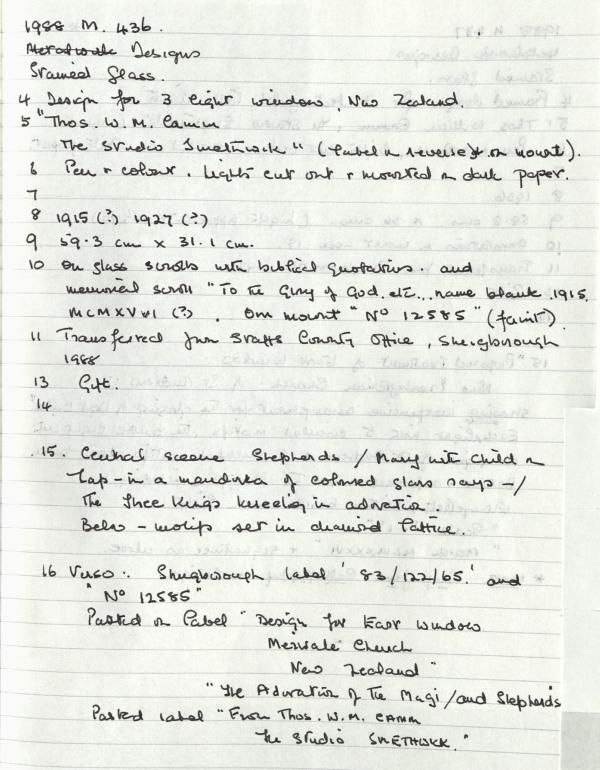 1988 M. 436.
Designs
Stained Glass.
4 Design for 3 light window, New Zealand.
5 "Thos. W. M. Camm
The Studio Smethwick" (label on reverse & on mount).
6 Pen & colour. Lights cut out & mounted on dark paper.
7
8 1915 (?) 1927 (?)
9 59.3 cm x 31.1 cm.
10 On glass scrolls with biblical quotations and
memorial scroll "To the Glory of God. etc... name blank 1915.
(?). On mount "No 12585" (faint).
11 Transferred from Staffs County Office, Shugborough
1988
13 Gift.
14
15. Central scene Shepherds / Mary with Child on
lap - in a mandorla of coloured glass rays - /
The Three Kings kneeling in adoration.
Below - motifs set in diamond lattice.
16 Verso: Shugborough label '83/122/65.' and
"No 12585"
Pasted on label "Design for East Window
Merivale Church
New Zealand"
"The Adoration of the Magi / and Shepherds
Pasted label "From Thos. W. M. CAMM
The Studio SMETHWICK."